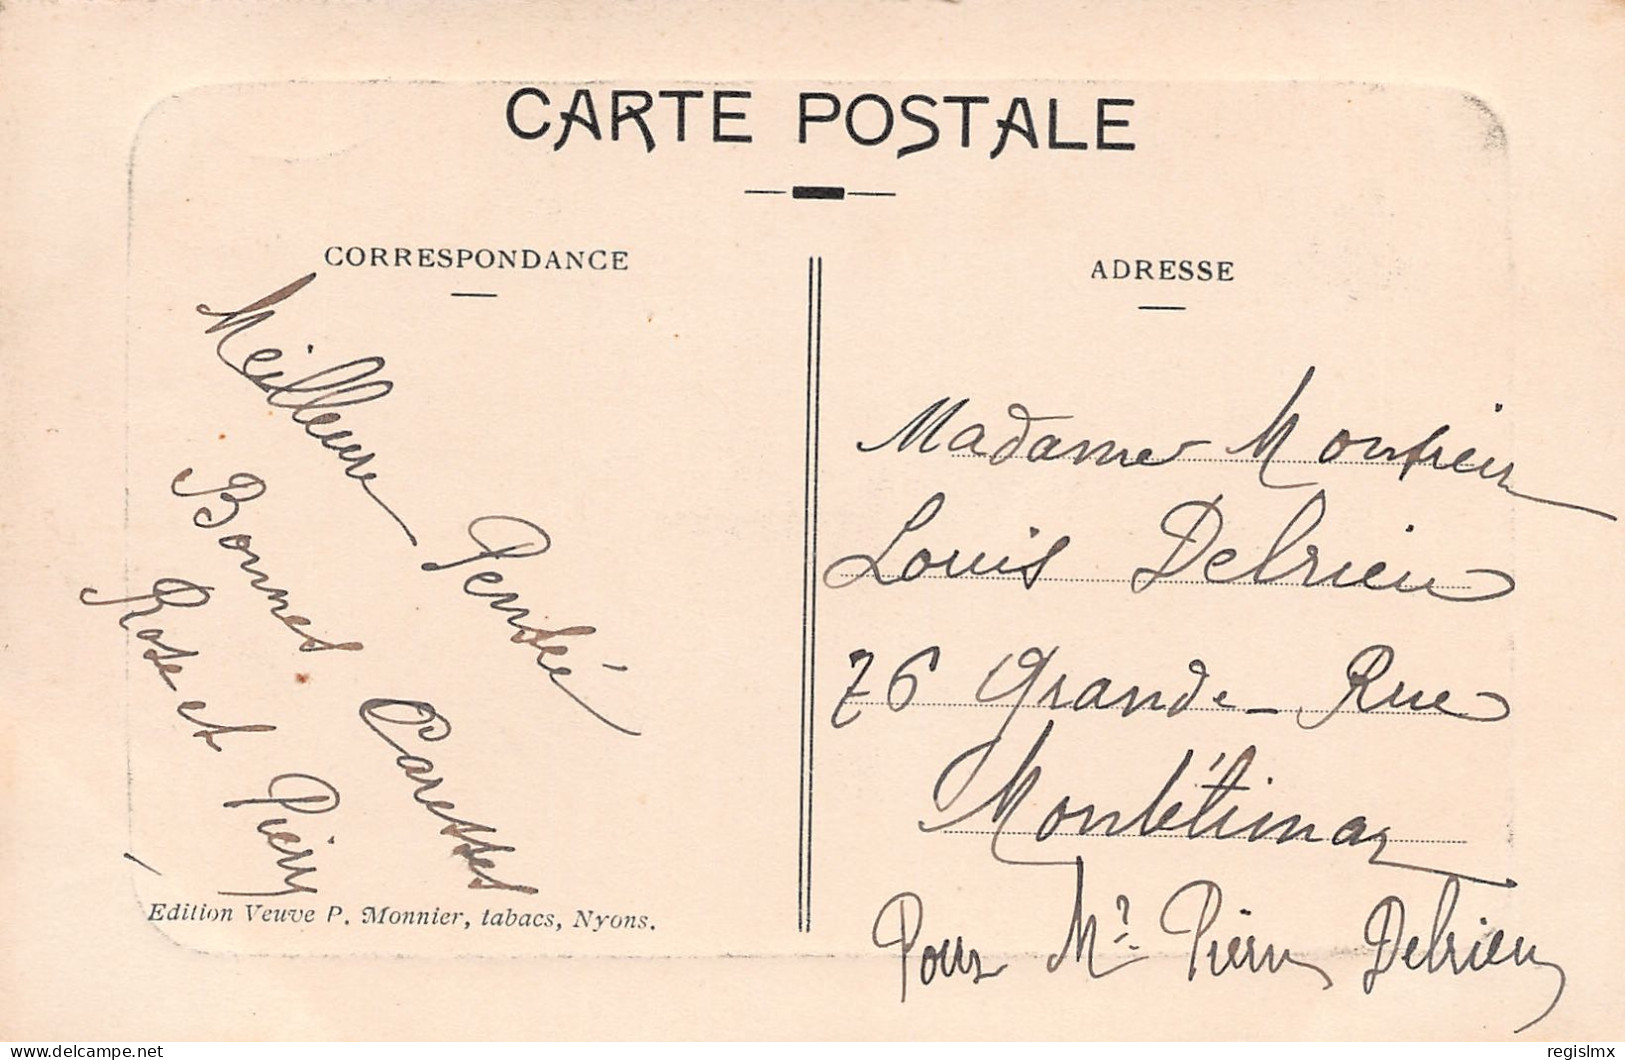 CARTE POSTALE
CORRESPONDANCE
Meilleure Pensée
Bonnes Caresses
Rose et Pierre
Edition Veuve P. Monnier, tabacs, Nyons.
ADRESSE
Madame Monsieur
Louis Delrieu
76 Grande-Rue
Montélimar
Pour Mr Pierre Delrieu
delcampe.net
regislmx